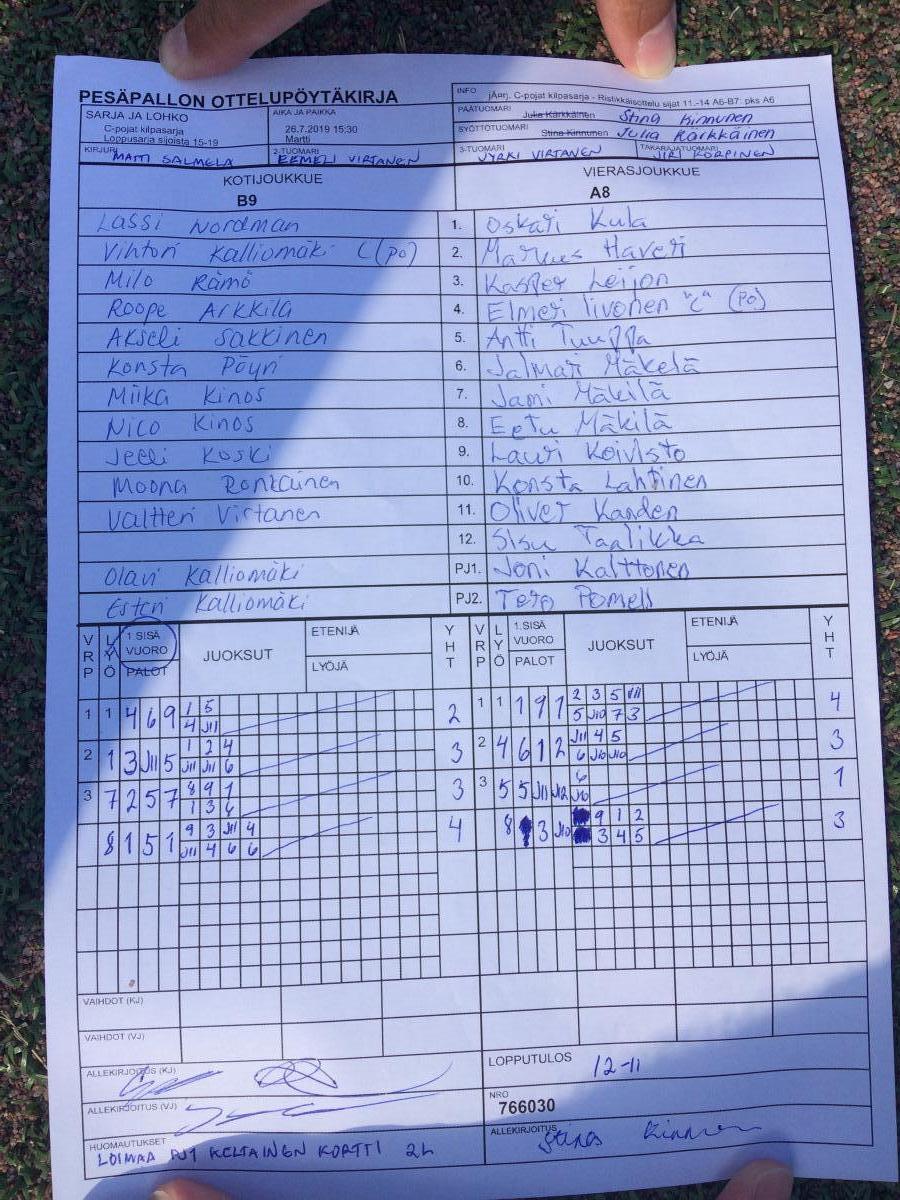 PESÄPALLON OTTELUPÖYTÄKIRJA
INFO jÄrrj. C-pojat kilpasarja - Ristikkäisottelu sijat 11.-14 A6-B7: pks A6
SARJA JA LOHKO
C-pojat kilpasarja
Loppusarja sijoista 15-19
AIKA JA PAIKKA
26.7.2019 15:30
Martti
PÄÄTUOMARI Julia Kärkkäinen Stina Kinnunen
SYÖTTÖTUOMARI Stina Kinnunen Julia Kärkkäinen
KIRJURI MATTI SALMELA
2-TUOMARI EEMELI VIRTANEN
3-TUOMARI JYRKI VIRTANEN
TAKARAJATUOMARI JIRI KORPINEN
KOTIJOUKKUE VIERASJOUKKUE
B9 A8
Lassi Nordman 1. Oskari Kula
Vihtori Kalliomäki C (po) 2. Markus Haveri
Milo Rämö 3. Kasper Leijon
Roope Arkkila 4. Elmeri Iivonen "C" (Po)
Akseli Sakkinen 5. Antti Tuuppa
Konsta Pöyri 6. Jalmari Mäkelä
Miika Kinos 7. Jami Mäkilä
Nico Kinos 8. Eetu Mäkilä
Jeeli Koski 9. Lauri Koivisto
Moona Ronkainen 10. Konsta Lahtinen
Valtteri Virtanen 11. Oliver Kanden
12. Sisu Taalikka
Olavi Kalliomäki PJ1. Joni Kalttonen
Esteri Kalliomäki PJ2. Tero Pomell
VRP LYÖ 1.SISÄ VUORO PALOT JUOKSUT ETENIJÄ LYÖJÄ YHT VRP LYÖ 1.SISÄ VUORO PALOT JUOKSUT ETENIJÄ LYÖJÄ YHT
1 1 4 6 9 1 5 2 1 1 1 9 1 2 3 5 J11 4
4 J11 5 J10 7 3
2 1 3 J11 5 1 2 4 3 2 4 6 1 2 J11 4 5 3
J11 J11 6 6 J10 J10
3 7 2 5 7 8 9 1 3 3 5 5 J11 J12 6 1
1 3 6 J10
8 1 5 1 9 3 J11 4 4 8 3 J10 9 1 2 3
J11 4 6 6 3 4 5
VAIHDOT (KJ)
VAIHDOT (VJ)
ALLEKIRJOITUS (KJ)
LOPPUTULOS 12-11
ALLEKIRJOITUS (VJ)
NRO
766030
HUOMAUTUKSET
LOIMAA PJ1 KELTAINEN KORTTI 2L
ALLEKIRJOITUS Stina Kinnunen